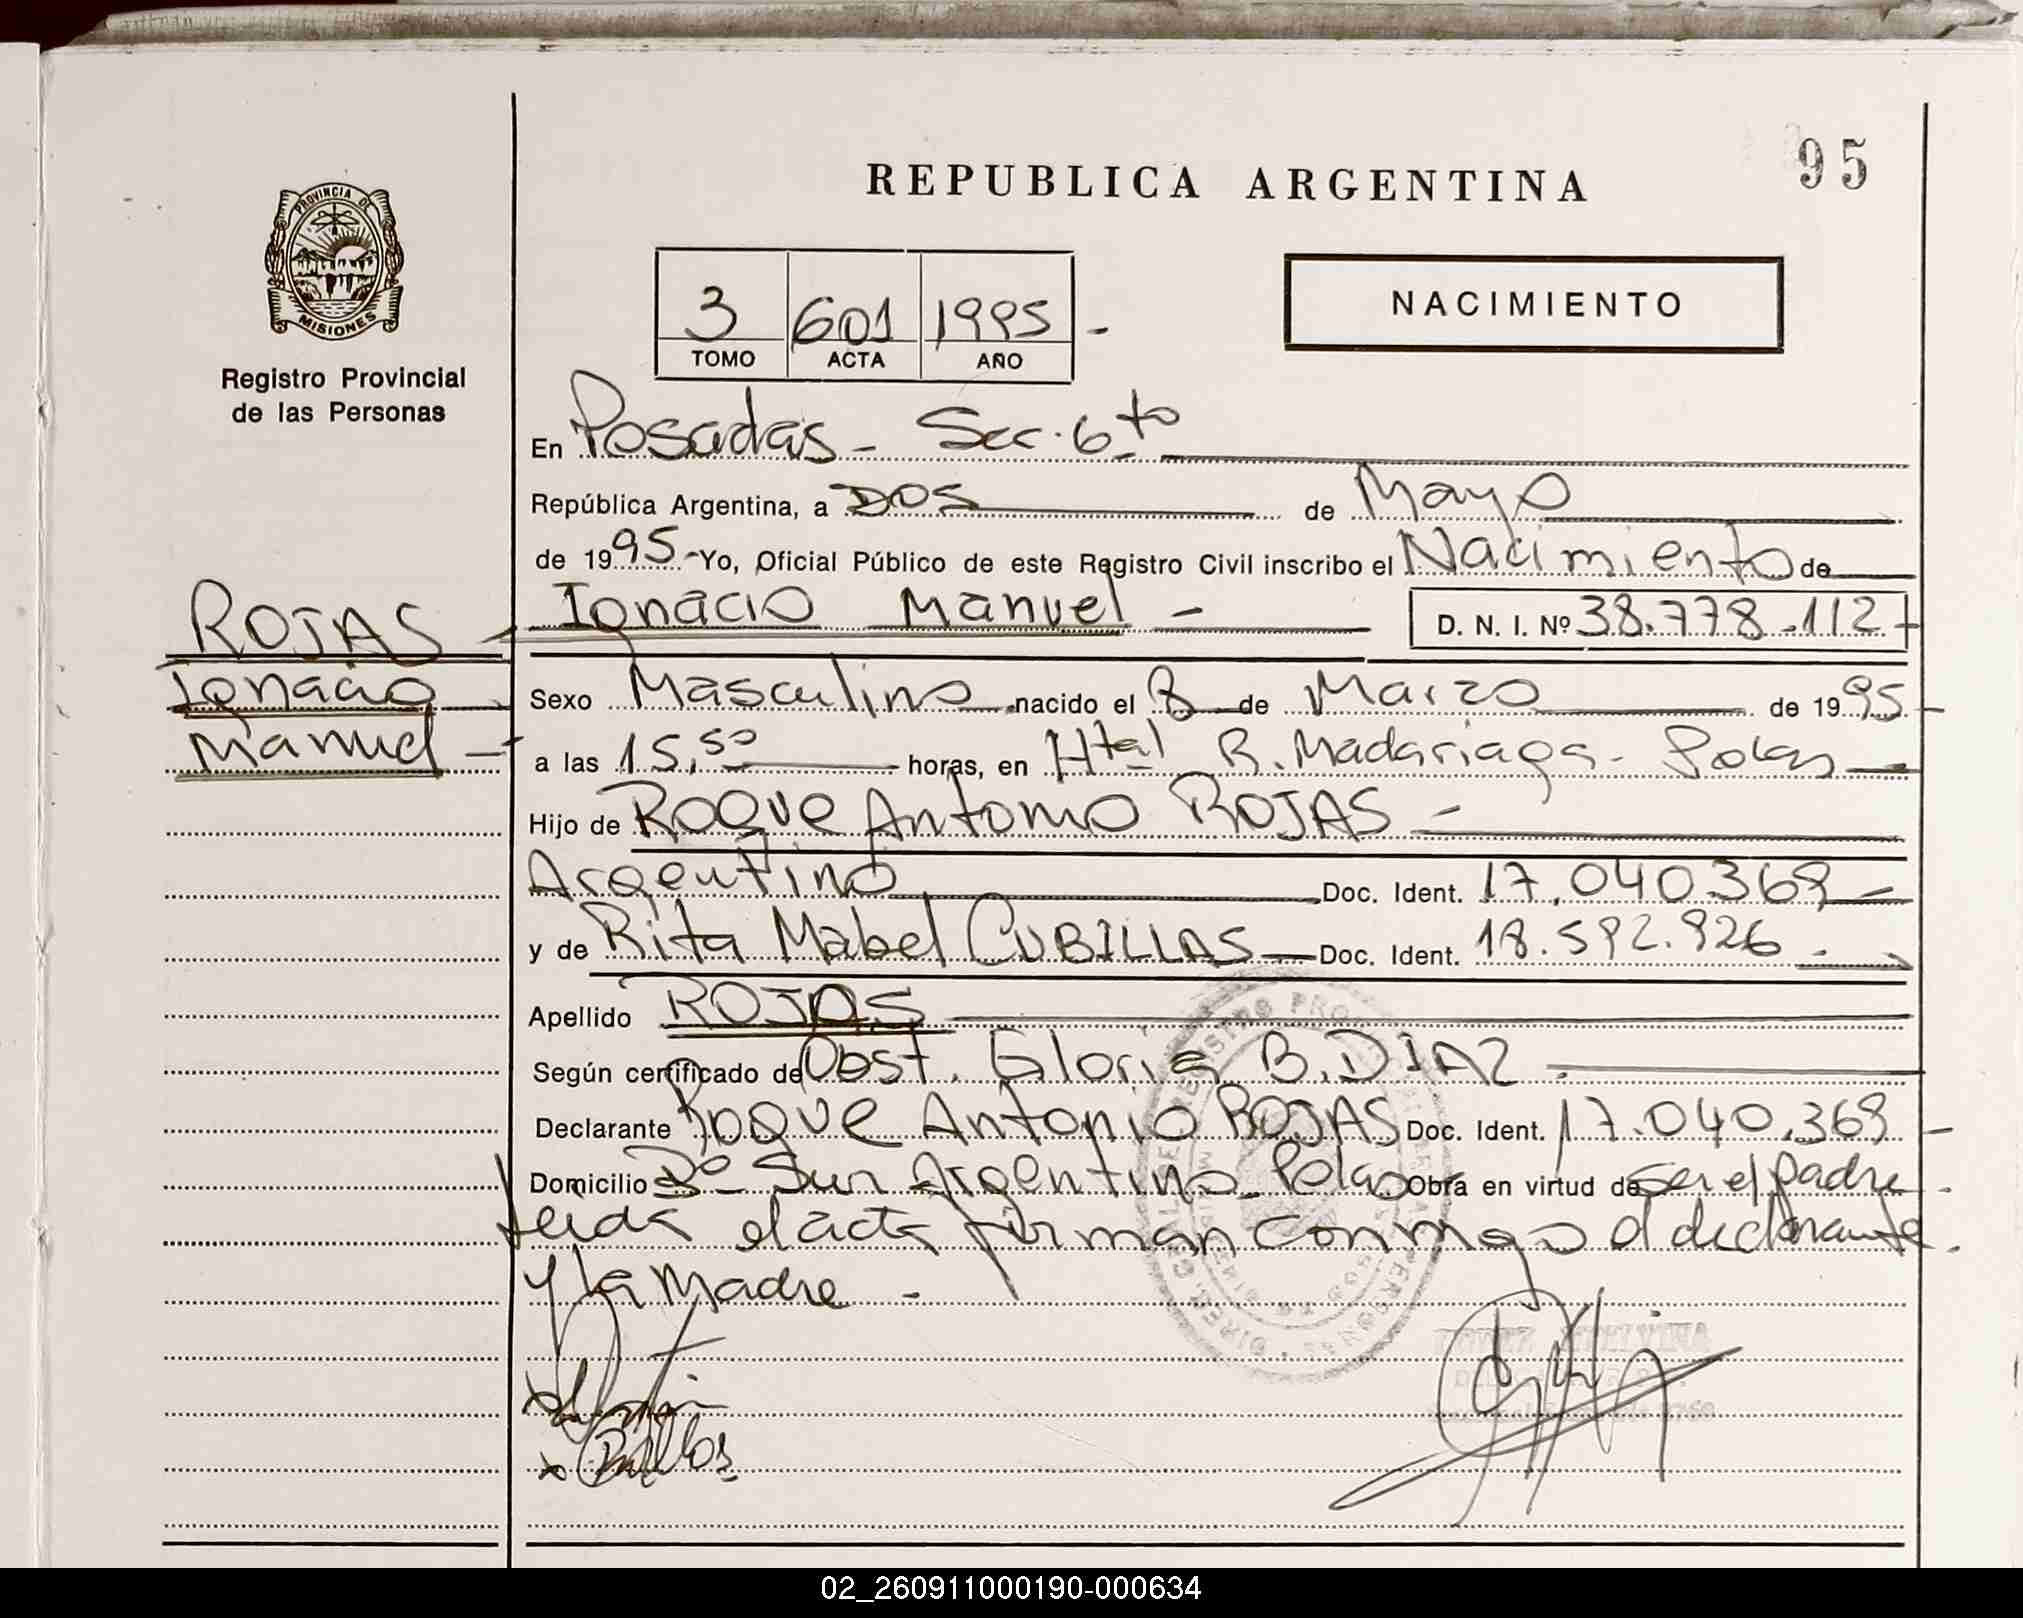 95
REPUBLICA ARGENTINA
PROVINCIA DE
MISIONES
Registro Provincial
de las Personas
3 601 1995 -
TOMO ACTA AÑO
NACIMIENTO
En Posadas - Sec. 6to
República Argentina, a DOS de Mayo
de 1995 - Yo, Oficial Público de este Registro Civil inscribo el Nacimiento de
Ignacio Manuel - D. N. I. Nº 38.778.112 -
ROJAS -
Ignacio
Manuel -
Sexo Masculino nacido el 8 de Marzo de 1995 -
a las 15,50 horas, en Htal R. Madariaga - Pdas
Hijo de Roque Antonio ROJAS -
Argentino Doc. Ident. 17.040.369 -
y de Rita Mabel CUBILLAS Doc. Ident. 18.592.926 -
Apellido ROJAS
Según certificado de Obst. Gloria B. DIAZ.
Declarante Roque Antonio ROJAS Doc. Ident. 17.040.369 -
Domicilio Bº Sur Argentino - Pdas Obra en virtud de ser el padre -
Leida el acta firman conmigo el declarante
y la Madre -
02_260911000190-000634